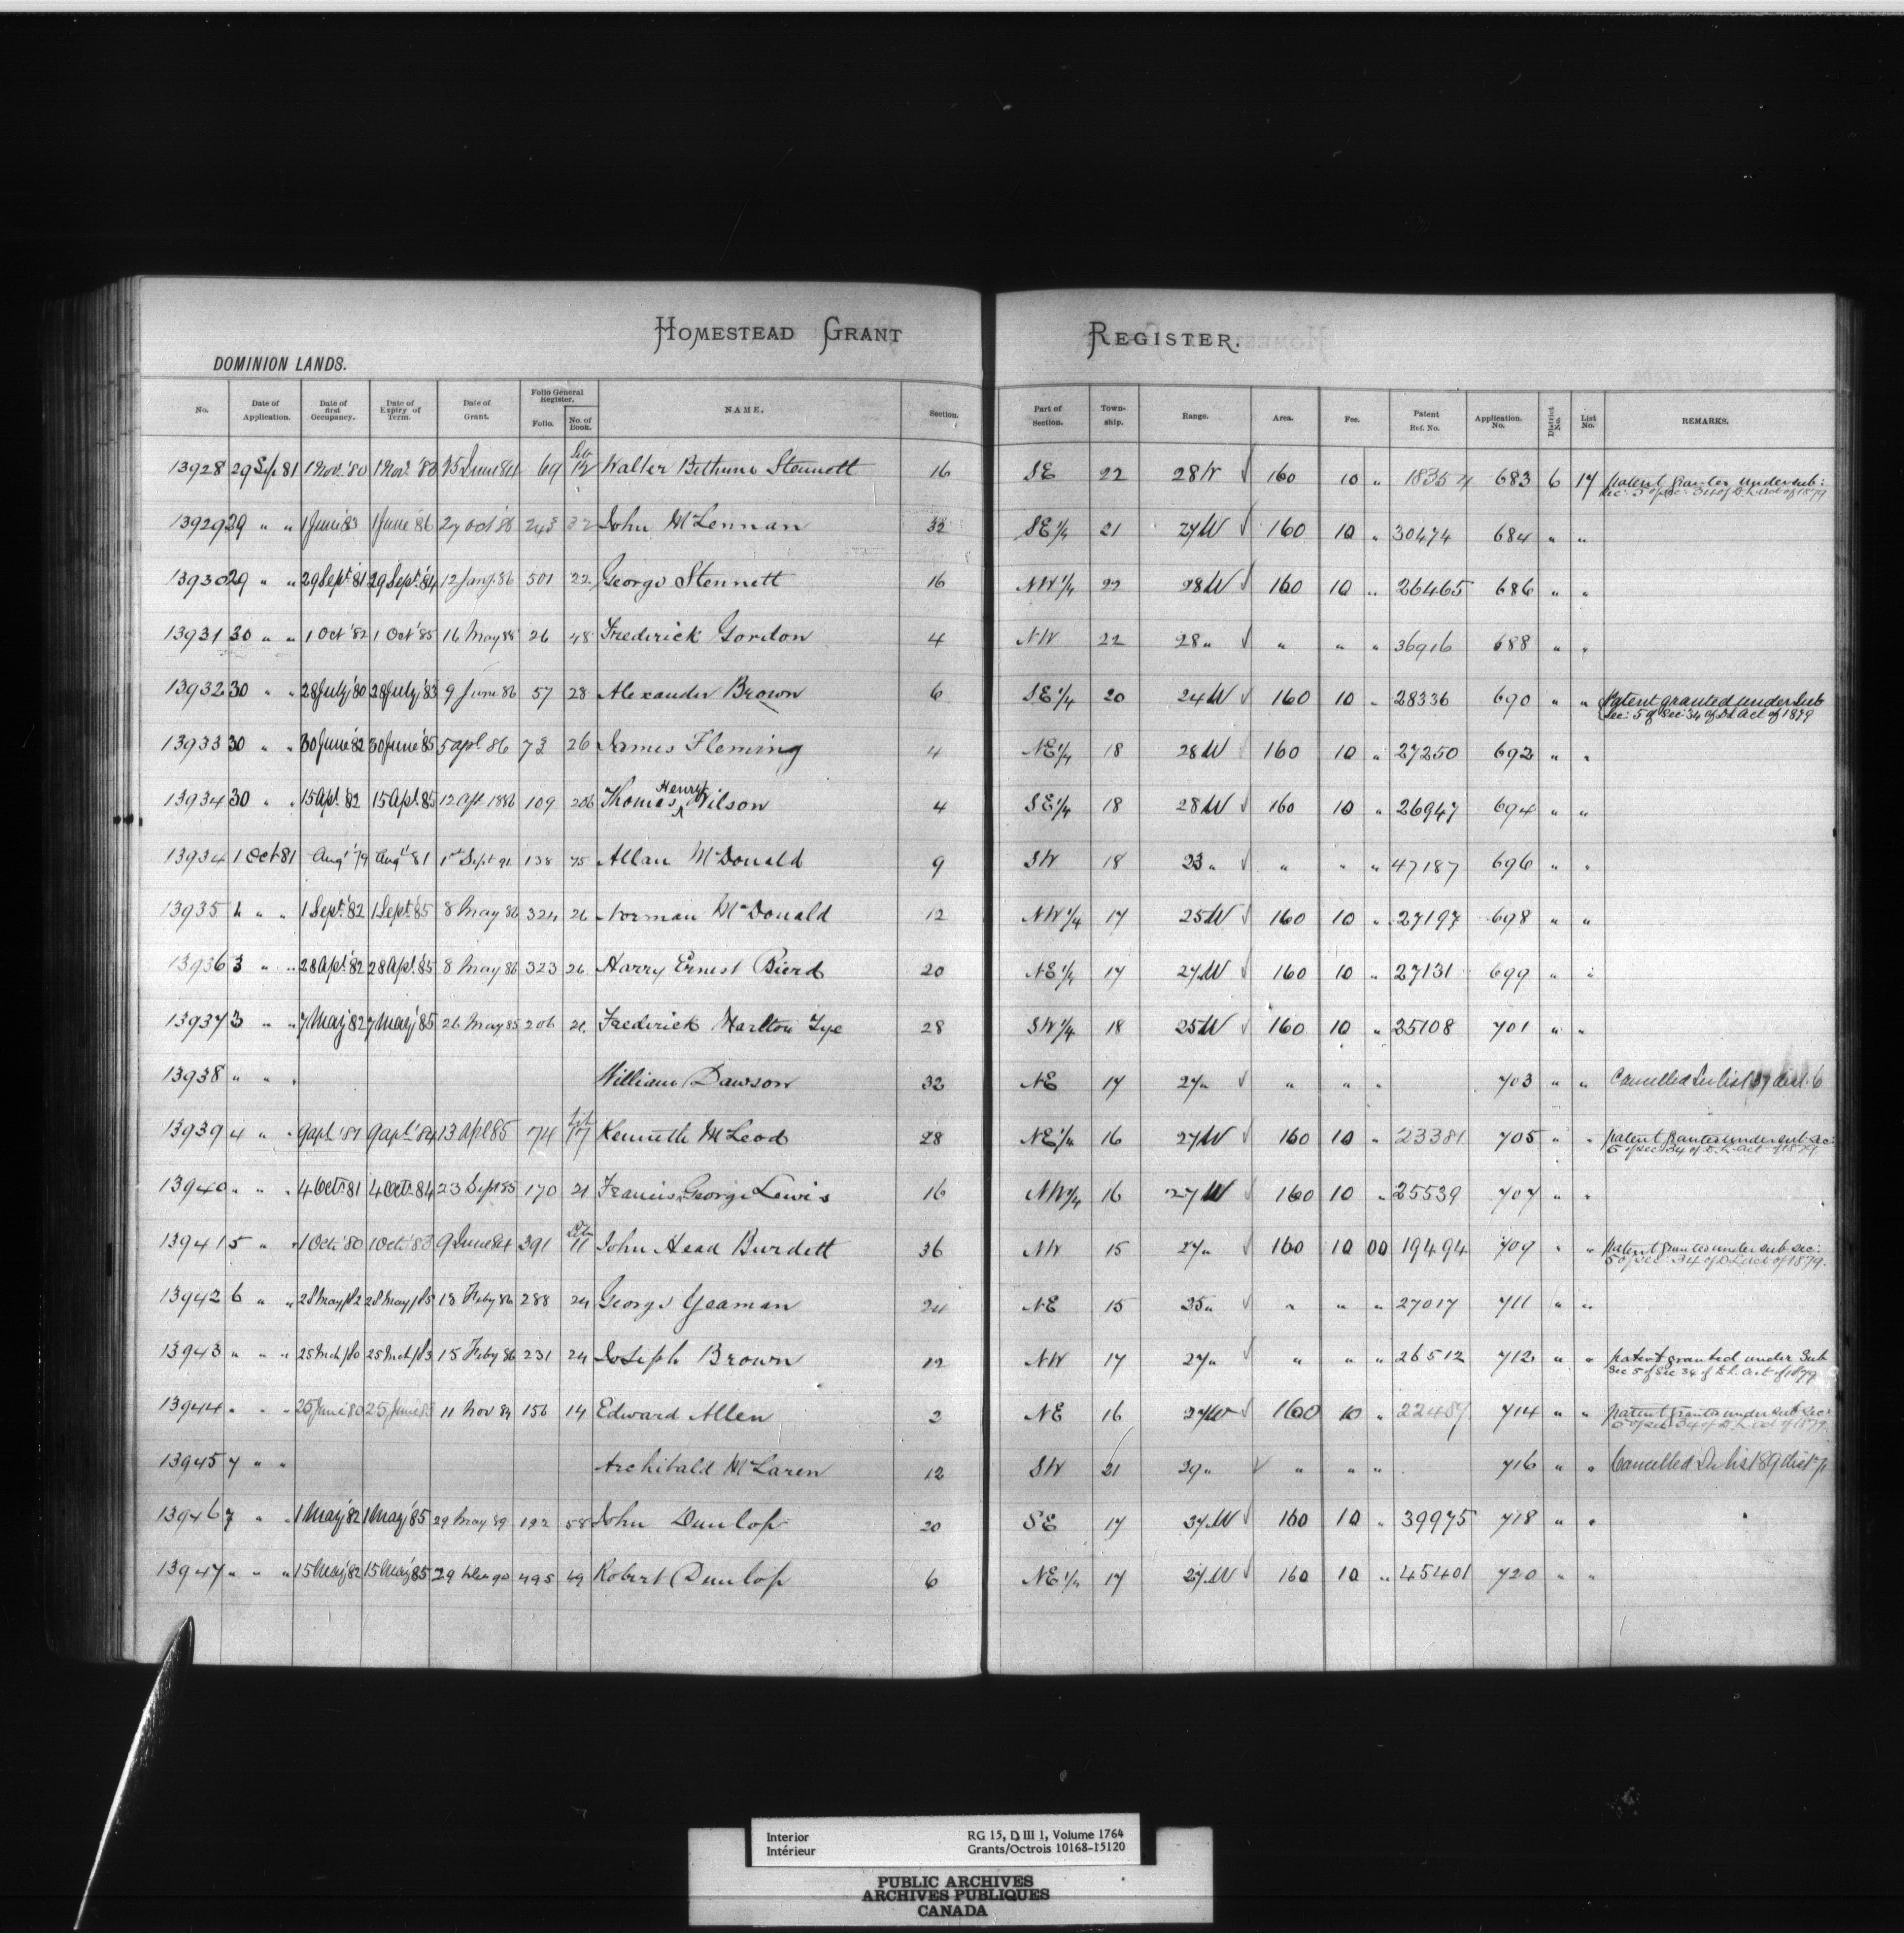 HOMESTEAD GRANT REGISTER.
DOMINION LANDS.
No. Date of Application. Date of first Occupancy. Date of Expiry of Term. Date of Grant. Folio General Register. Folio. No of Book. NAME. Section. Part of Section. Township. Range. Area. Fee. Patent Ref. No. Application No. District No. List No. REMARKS.
13928 29 Sep 81 1 Nov. '80 1 Nov. '83 25 June 84 69 12 Walter Bethune Stennett 16 SE 22 28 W √ 160 10 „ 18354 683 6 17 patent granted under sub: sec: 5 of sec: 34 of D.L. act of 1879
13929 29 „ „ 1 June '83 1 June '86 27 Oct '86 243 32 John McLennan 32 SE 1/4 21 27 W √ 160 10 „ 30474 684 „ „
13930 29 „ „ 29 Sept '81 29 Sept. '84 12 Jany. 86 501 22 George Stennett 16 NW 1/4 22 28 W √ 160 10 „ 26465 686 „ „
13931 30 „ „ 1 Oct '82 1 Oct '85 16 May 88 26 48 Frederick Gordon 4 NW 22 28 „ √ „ „ „ 36916 688 „ „
13932 30 „ „ 28 July '80 28 July '83 9 June 86 57 28 Alexander Brown 6 SE 1/4 20 24 W √ 160 10 „ 28336 690 „ „ Patent granted under Sub Sec: 5 of Sec: 34 of DL Act of 1879
13933 30 „ „ 30 June '82 30 June '85 5 apl 86 73 26 James Fleming 4 NE 1/4 18 28 W √ 160 10 „ 27250 692 „ „
13934 30 „ „ 15 Apl. '82 15 Apl. 85 12 apl 1886 109 206 Thomas Henry Wilson 4 SE 1/4 18 28 W √ 160 10 „ 26947 694 „ „
13934 1 Oct 81 Augt '79 Augt '81 1st Sept 91 138 75 Allan McDonald 9 SW 18 23 „ √ „ „ „ 47187 696 „ „
13935 „ „ 1 Sept. '82 1 Sept. '85 8 May 86 324 26 Norman McDonald 12 NW 1/4 17 25 W √ 160 10 „ 27197 698 „ „
13936 3 „ „ 28 Apl. '82 28 Apl. '85 8 May 86 323 26 Harry Ernest Bierd 20 NE 1/4 17 27 W √ 160 10 „ 27131 699 „ „
13937 3 „ „ 7 May '82 7 May '85 26 May 85 206 Frederick Tye 28 SW 1/4 18 25 W √ 160 10 „ 25108 701 „ „
13938 „ „ „ William Dawson 32 NE 17 27 „ √ „ „ „ 703 „ „ Cancelled See list 37 dist. 6
13939 4 „ „ 9 apl '81 9 apl '84 13 apl 85 74 17 Kenneth McLeod 28 NE 1/4 16 27 W √ 160 10 „ 23381 705 „ „ patent granted under sub sec: 5 of sec 34 of D.L. act of 1879.
13940 „ „ „ 4 Octr. 81 4 Octr. 84 23 Sept 85 170 21 Francis George Lewis 16 NW 1/4 16 27 W √ 160 10 „ 25539 707 „ „
13941 5 „ „ 1 Oct. '80 1 Oct. '83 9 June 84 391 11 John Head Burdett 36 NW 15 27 „ √ 160 10 00 19494 709 „ „ patent granted under sub sec: 5 of sec: 34 of DL act of 1879.
13942 6 „ „ 28 May /82 28 May /85 18 Feby 86 288 24 George Yeaman 24 NE 15 25 „ √ „ „ „ 27017 711 „ „
13943 „ „ „ 25 Mch /80 25 Mch /83 15 Feby 86 231 24 Joseph Brown 12 NW 17 27 „ √ „ „ „ 26512 712 „ „ patent granted under Sub Sec 5 of Sec 34 of D.L. act of 1879
13944 „ „ „ 25 June '80 25 June 83 11 Nov 84 156 14 Edward Allen 2 NE 16 27 W √ 160 10 „ 22487 714 „ „ patent granted under sub sec: 5 of sec: 34 of D.L. act of 1879.
13945 7 „ „ Archibald McLaren 12 SW 21 29 „ √ „ „ „ 716 „ „ Cancelled See list 89 dist 7
13946 7 „ „ 1 May '82 1 May '85 29 May 89 192 58 John Dunlop 20 SE 17 27 W √ 160 10 „ 39975 718 „ „
13947 „ „ „ 15 May '82 15 May '85 29 90 495 69 Robert Dunlop 6 NE 1/4 17 27 W √ 160 10 „ 45401 720 „ „
Interior RG 15, D III 1, Volume 1764
Intérieur Grants/Octrois 10168-15120
PUBLIC ARCHIVES
ARCHIVES PUBLIQUES
CANADA